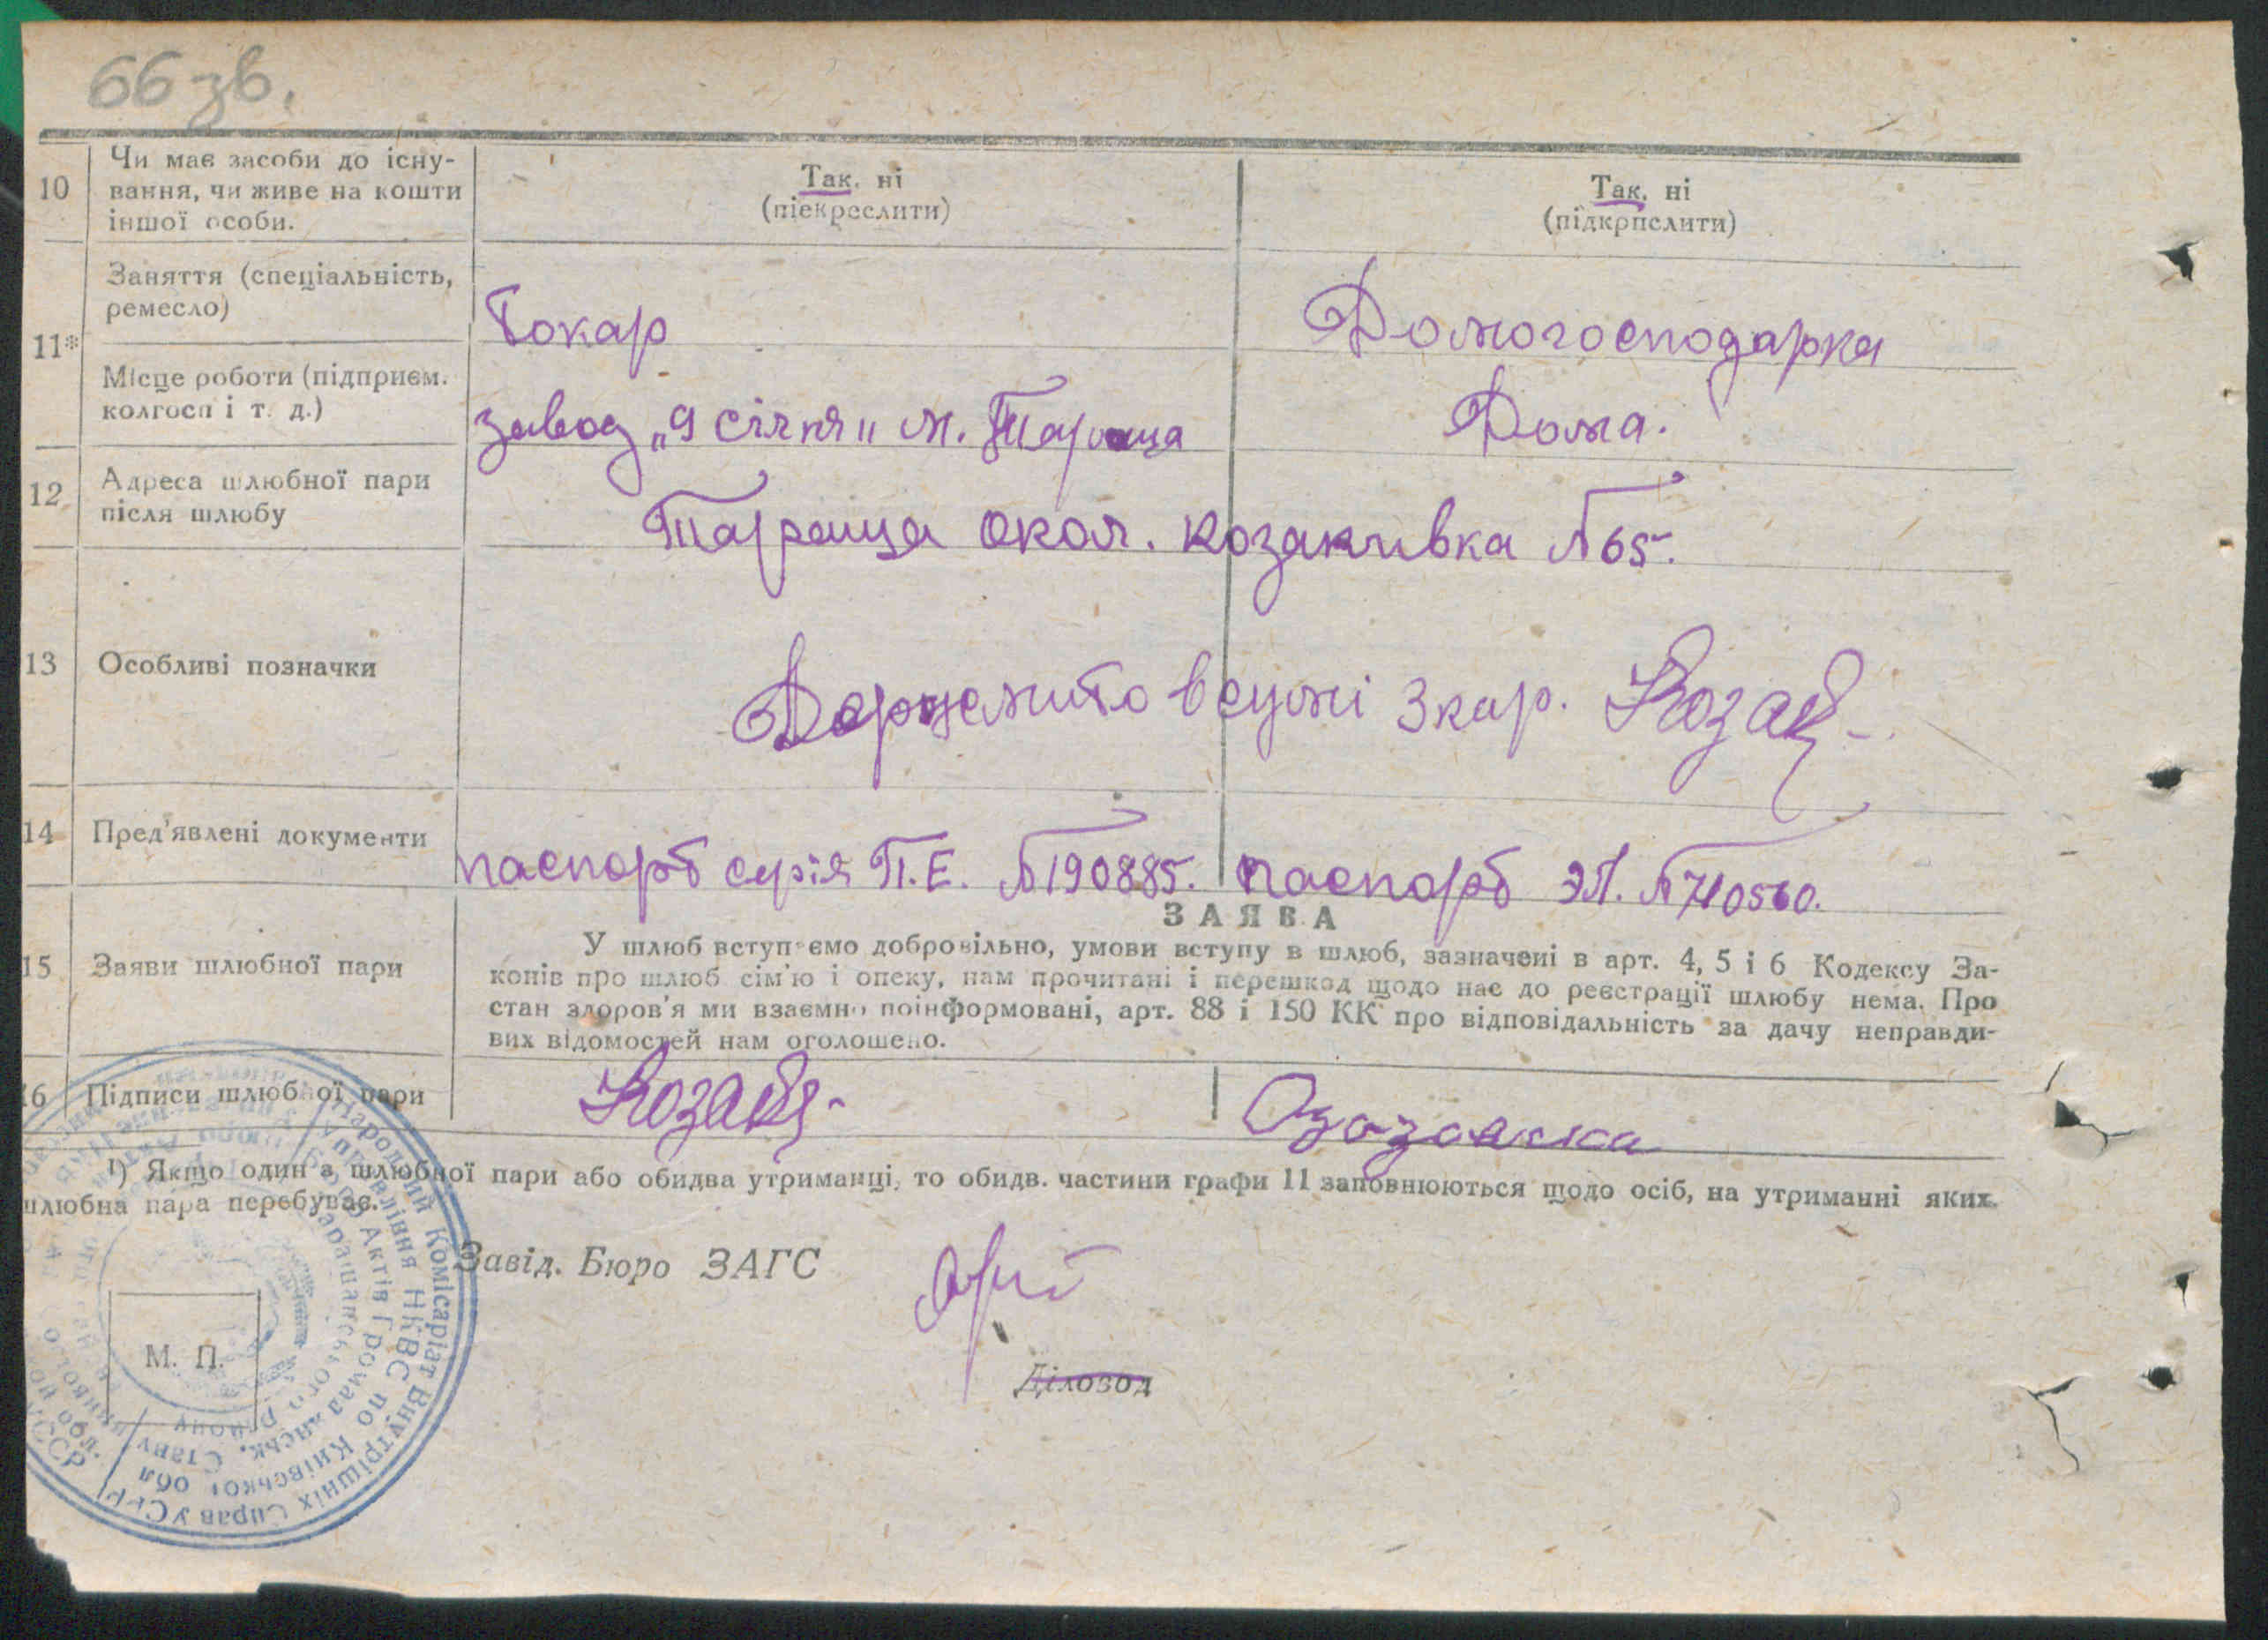 66 зв.
10 Чи має засоби до існу-
вання, чи живе на кошти
іншої особи.
Так, ні
(піекреслити)
Так, ні
(підкрпслити)
11* Заняття (спеціальність,
ремесло)
Токар
Домогосподарка
Місце роботи (підприєм.
колгосп і т. д.)
завод „9 січня" м. Тараща
Дома.
12 Адреса шлюбної пари
після шлюбу
Тараща окол. Козаківка №65.
13 Особливі позначки
в сумі 3 кар. Козак
14 Пред'явлені документи
паспорт серія П.Е. №190885.
паспорт ЭЛ. №710560.
ЗАЯВА
15 Заяви шлюбної пари
У шлюб вступаємо добровільно, умови вступу в шлюб, зазначені в арт. 4, 5 і 6 Кодексу За-
конів про шлюб сім'ю і опеку, нам прочитані і перешкод щодо нас до реєстрації шлюбу нема. Про
стан здоров'я ми взаємно поінформовані, арт. 88 і 150 КК про відповідальність за дачу неправди-
вих відомостей нам оголошено.
16 Підписи шлюбної пари
¹) Якщо один з шлюбної пари або обидва утриманці, то обидв. частини графи 11 заповнюються щодо осіб, на утриманні яких
шлюбна пара перебуває.
Завід. Бюро ЗАГС
Діловод
М. П.
Народний Комісаріат Внутрішніх Справ УСРР
Управління НКВС по Київській обл
Бюро Актів Громадянськ. Стану
Таращанського Району